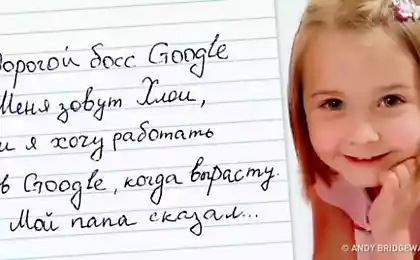 Дорогой босс Google
Меня зовут Хлои,
и я хочу работать
в Google, когда вырасту.
Мой папа сказал...
© ANDY BRIDGEWA